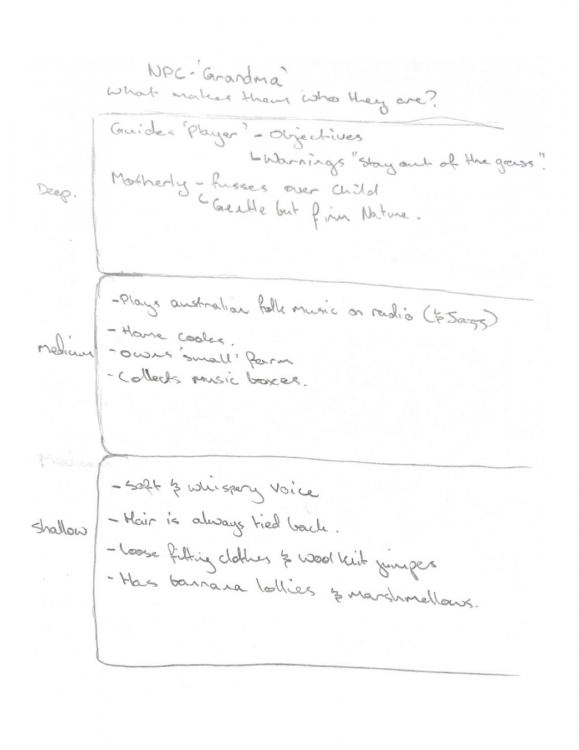 NPC - 'Grandma'
What makes them who they are?
Guides 'Player' - Objectives
↳ Warnings "stay out of the grass".
Deep.
Motherly - fusses over Child
↳ Gentle but firm Nature.
- Plays australian folk music on radio (& Jazz)
- Home cooks.
medium
- owns 'small' farm
- Collects music boxes.
- Soft & whispery voice
shallow
- Hair is always tied back.
- Loose fitting clothes & wool knit jumper
- Has bannana lollies & marshmellows.